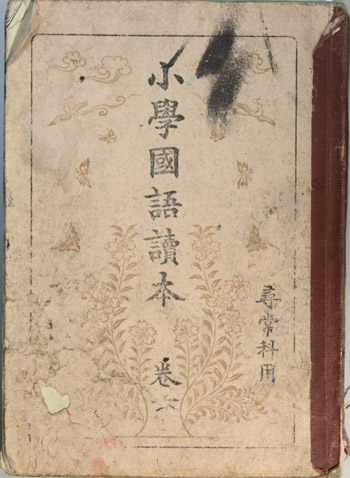 小學國語讀本 卷六
尋常科用